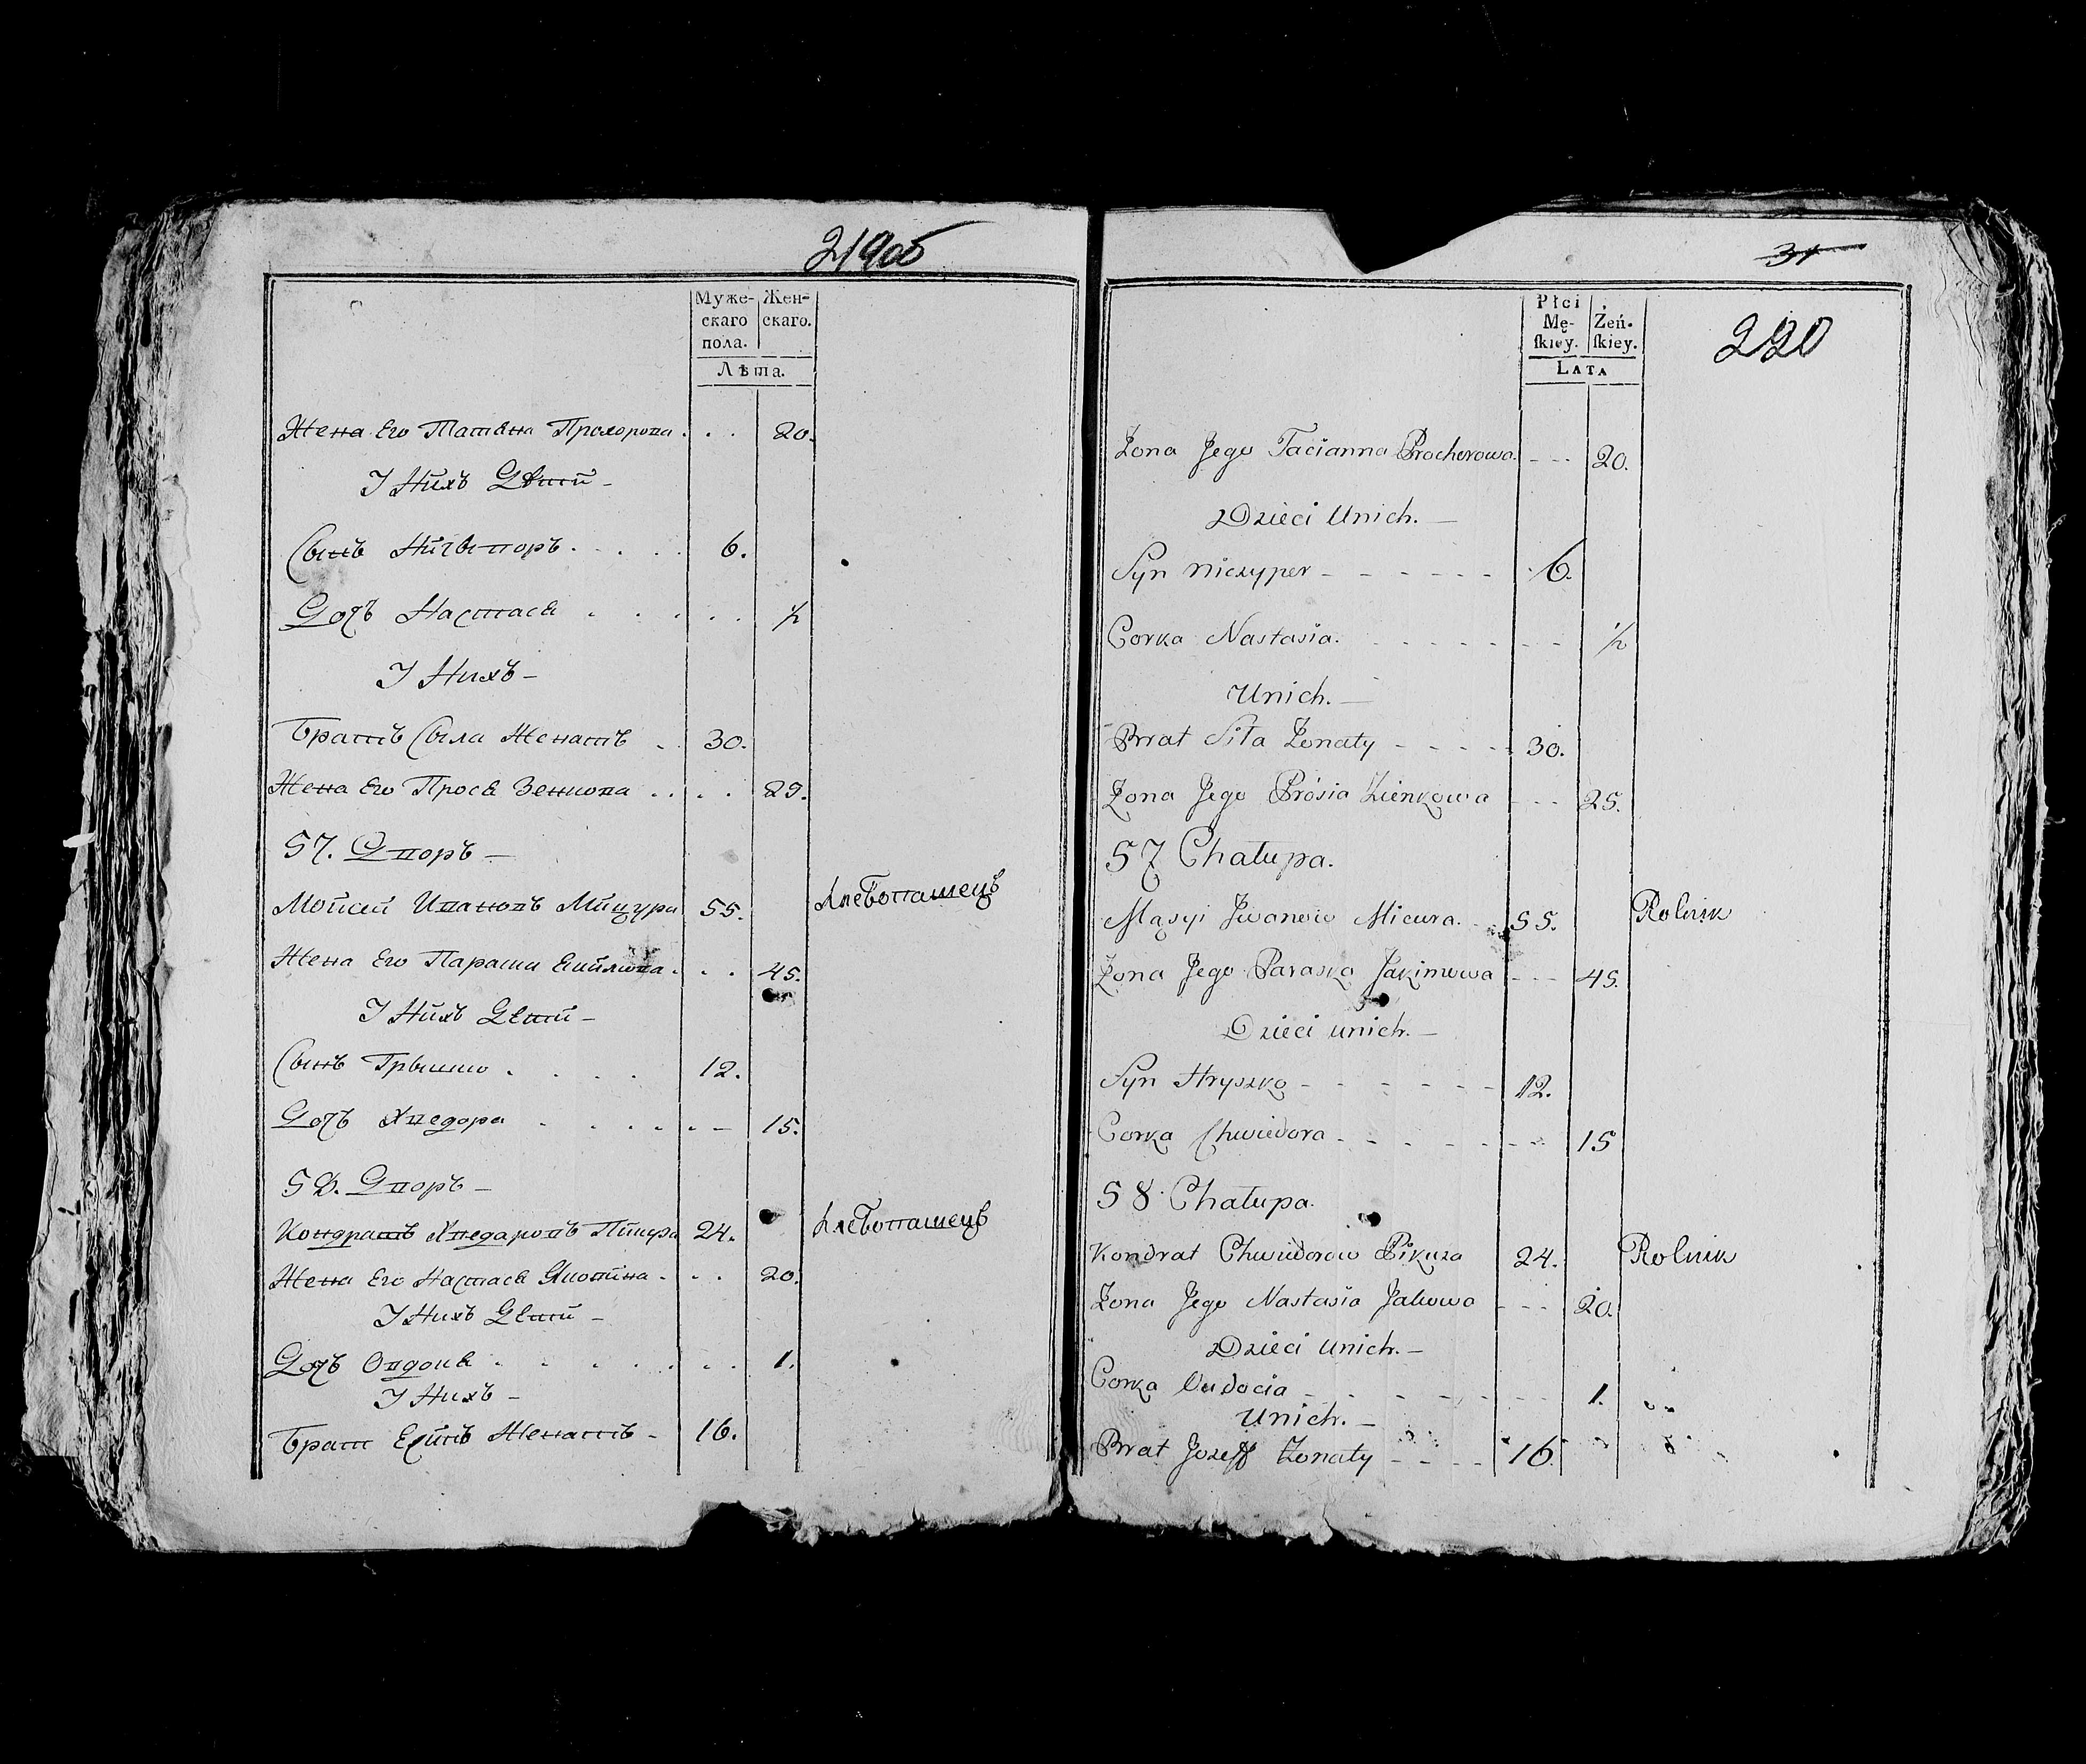 219об
Муже- Жен-
скаго скаго.
пола.
Лѣта.
Жена Его Татѣна Прохорова . . . 20.
У Нихъ Дѣти -
Сынъ Ничыпоръ . . . . 6.
Дочъ Настасѣ . . . . . . ½
У Нихъ -
Братъ Сыла Женатъ . . 30.
Жена Его Просѣ Зенкова . . . . 29.
57. Дворъ -
Мойсей Ивановъ Мицура 55. Хлебопашецъ
Жена Его Параска Екимова . . . 45.
У Нихъ Дети -
Сынъ Грышко . . . . 12.
Дочъ Хведора . . . . . . - 15.
58. Дворъ -
Кондратъ Хведаровъ Пикуза 24. Хлебопашецъ
Жена Его Настасѣ Яковина . . . 20.
У Нихъ Дети -
Дочъ Овдокѣ . . . . . . . 1.
У Нихъ -
Брат Есипъ Женатъ - 16.
31
Płci Żeń-
Mę- ſkiey.
ſkiey.
LATA
220
Żona Jego Tacianna Procherowa. - - - 20.
Dzieci Unich. -
Syn Niczyper - - - - - - 6.
Corka Nastasia. - - - - - - - ½
Unich. -
Brat Siła Żonaty - - - - - 30.
Żona Jego Prósia Zienkowa - - - 25.
57 Chałupa.
Masyi Jwanow Micura. - 55. Rolnik
Żona Jego Paraska Jakimowa - - - 45.
Dzieci unich. -
Syn Hryszko - - - - - - 12.
Corka Chwiedora - - - - - - - - 15
58 Chałupa.
Kondrat Chwiedorow Pikuza 24. Rolnik
Żona Jego Nastasia Jakowa - - - 20.
Dzieci unich. -
Corka Oudocia - - - - - - - 1.
Unich. -
Brat Jozeff Żonaty - - - - 16.